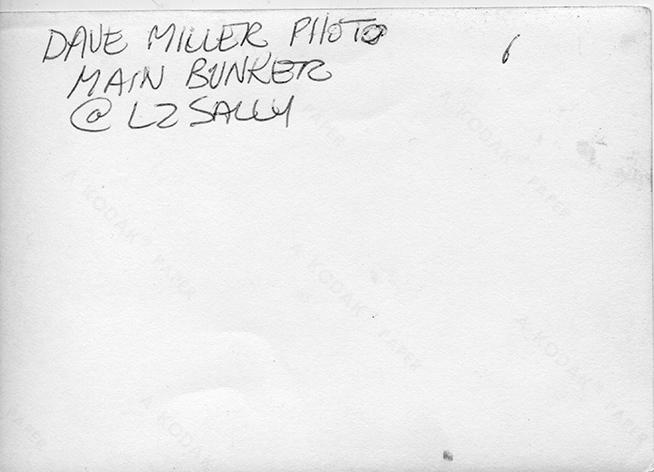 DAVE MILLER PHOTO
MAIN BUNKER
@ LZ SALLY
A KODAK® PAPER
A KODAK® PAPER
A KODAK® PAPER
A KODAK® PAPER
A KODAK
PAPER
PAPER